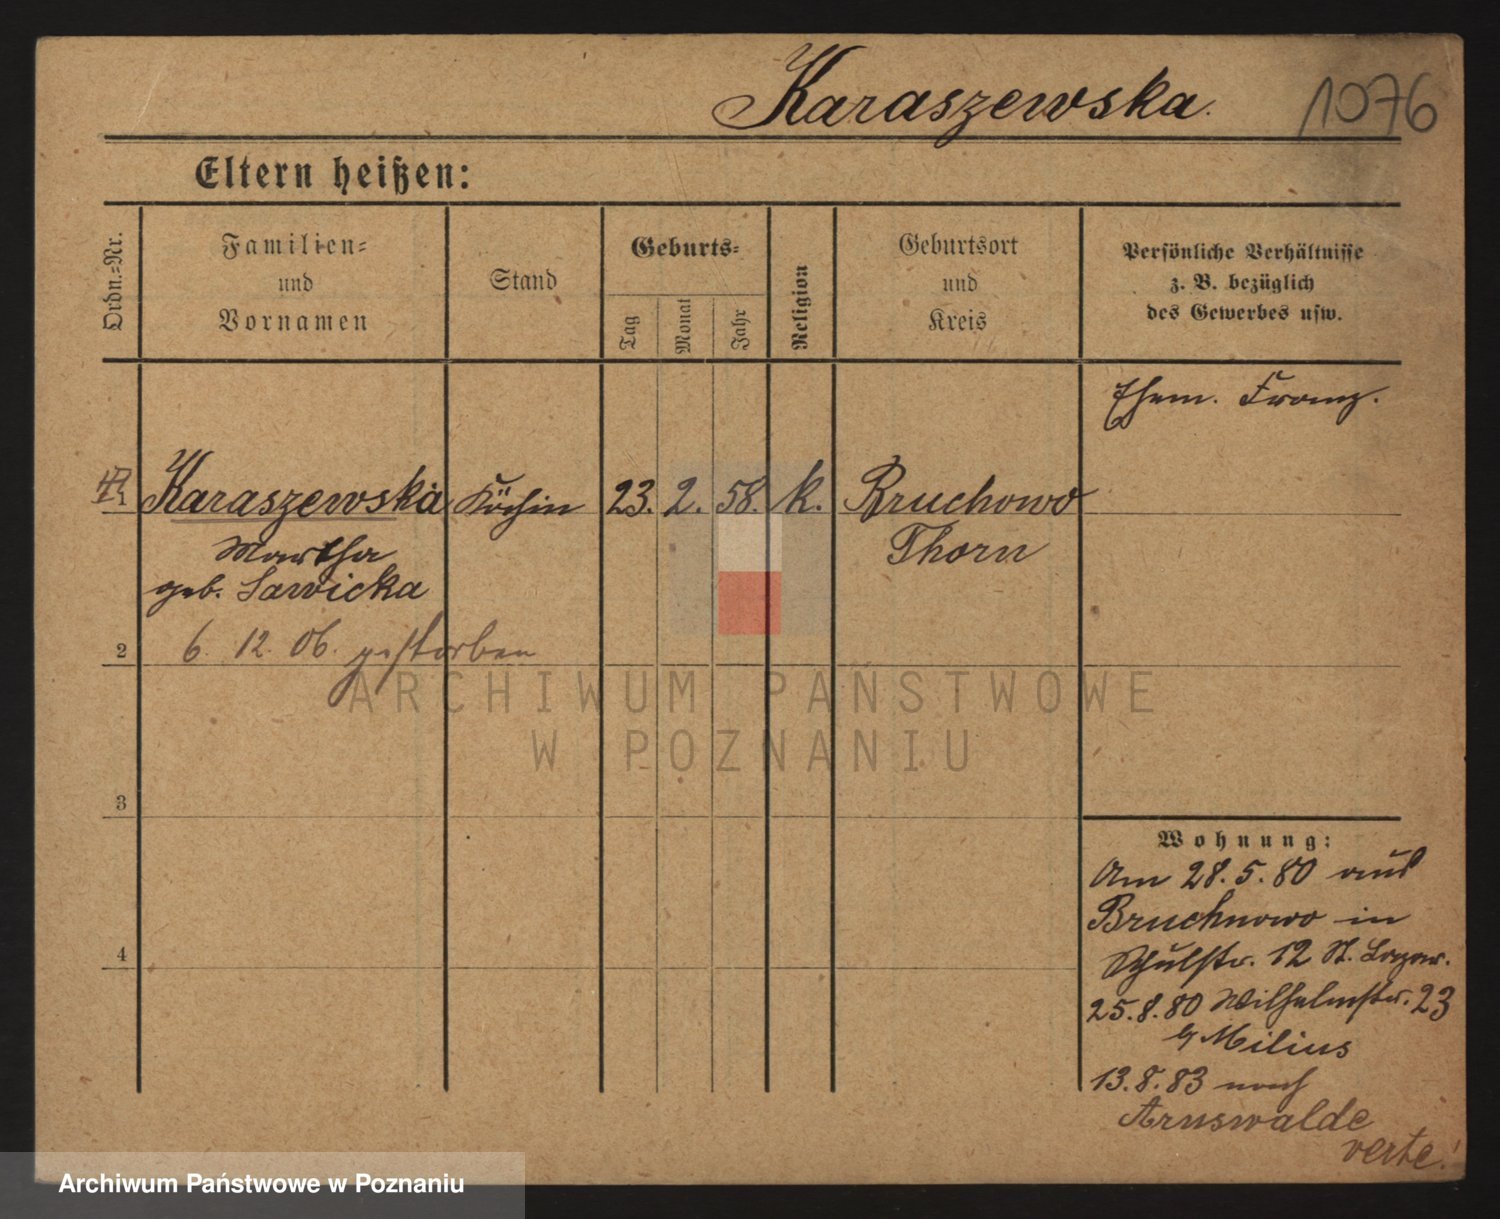 Karaszewska.
1076
Eltern heißen:
Ordn.-Nr.
Familien-
und
Vornamen
Stand
Geburts-
Tag
Monat
Jahr
Religion
Geburtsort
und
Kreis
Persönliche Verhältnisse
z. B. bezüglich
des Gewerbes usw.
Ehem. Franz.
1
Karaszewska Köchin 23. 2. 58. k. Bruchowo
Martha Thorn
geb. Sawicka
6. 12. 06. gestorben
2
3
4
Wohnung:
Am 28. 5. 80 aus
Bruchnowo in
Schulstr. 12 St. Lazar.
25. 8. 80 Wilhelmstr. 23
b/ Milius
13. 8. 83 nach
Arnswalde
verte!
ARCHIWUM PAŃSTWOWE
W POZNANIU
Archiwum Państwowe w Poznaniu